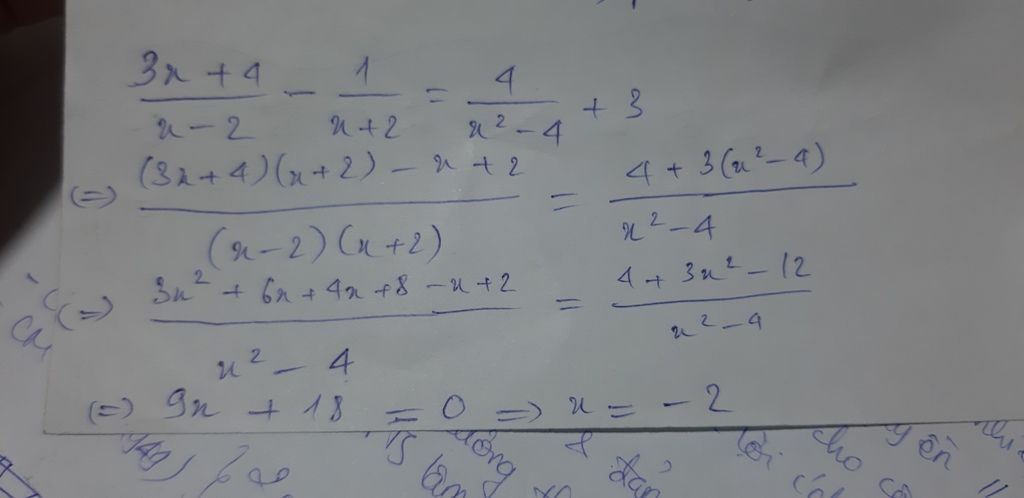 (3x+4)/(x-2) - 1/(x+2) = 4/(x²-4) + 3
(=) ((3x+4)(x+2) - x + 2)/((x-2)(x+2)) = (4 + 3(x²-4))/(x²-4)
(=) (3x² + 6x + 4x + 8 - x + 2)/(x² - 4) = (4 + 3x² - 12)/(x² - 4)
(=) 9x + 18 = 0 => x = -2
cho